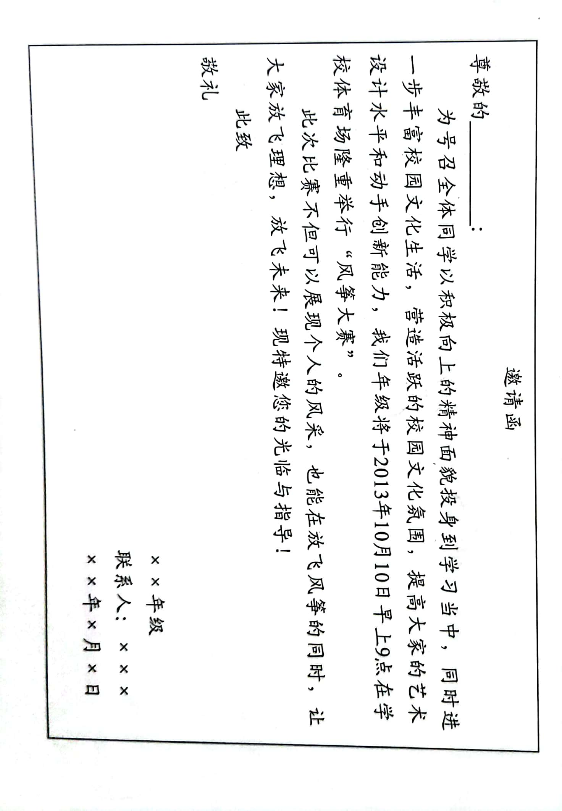 邀请函
尊敬的________:
为号召全体同学以积极向上的精神面貌投身到学习当中，同时进
一步丰富校园文化生活，营造活跃的校园文化氛围，提高大家的艺术
设计水平和动手创新能力，我们年级将于2013年10月10日早上9点在学
校体育场隆重举行“风筝大赛”。
此次比赛不但可以展现个人的风采，也能在放飞风筝的同时，让
大家放飞理想，放飞未来！现特邀您的光临与指导！
此致
敬礼
××年级
联系人：×××
××年×月×日